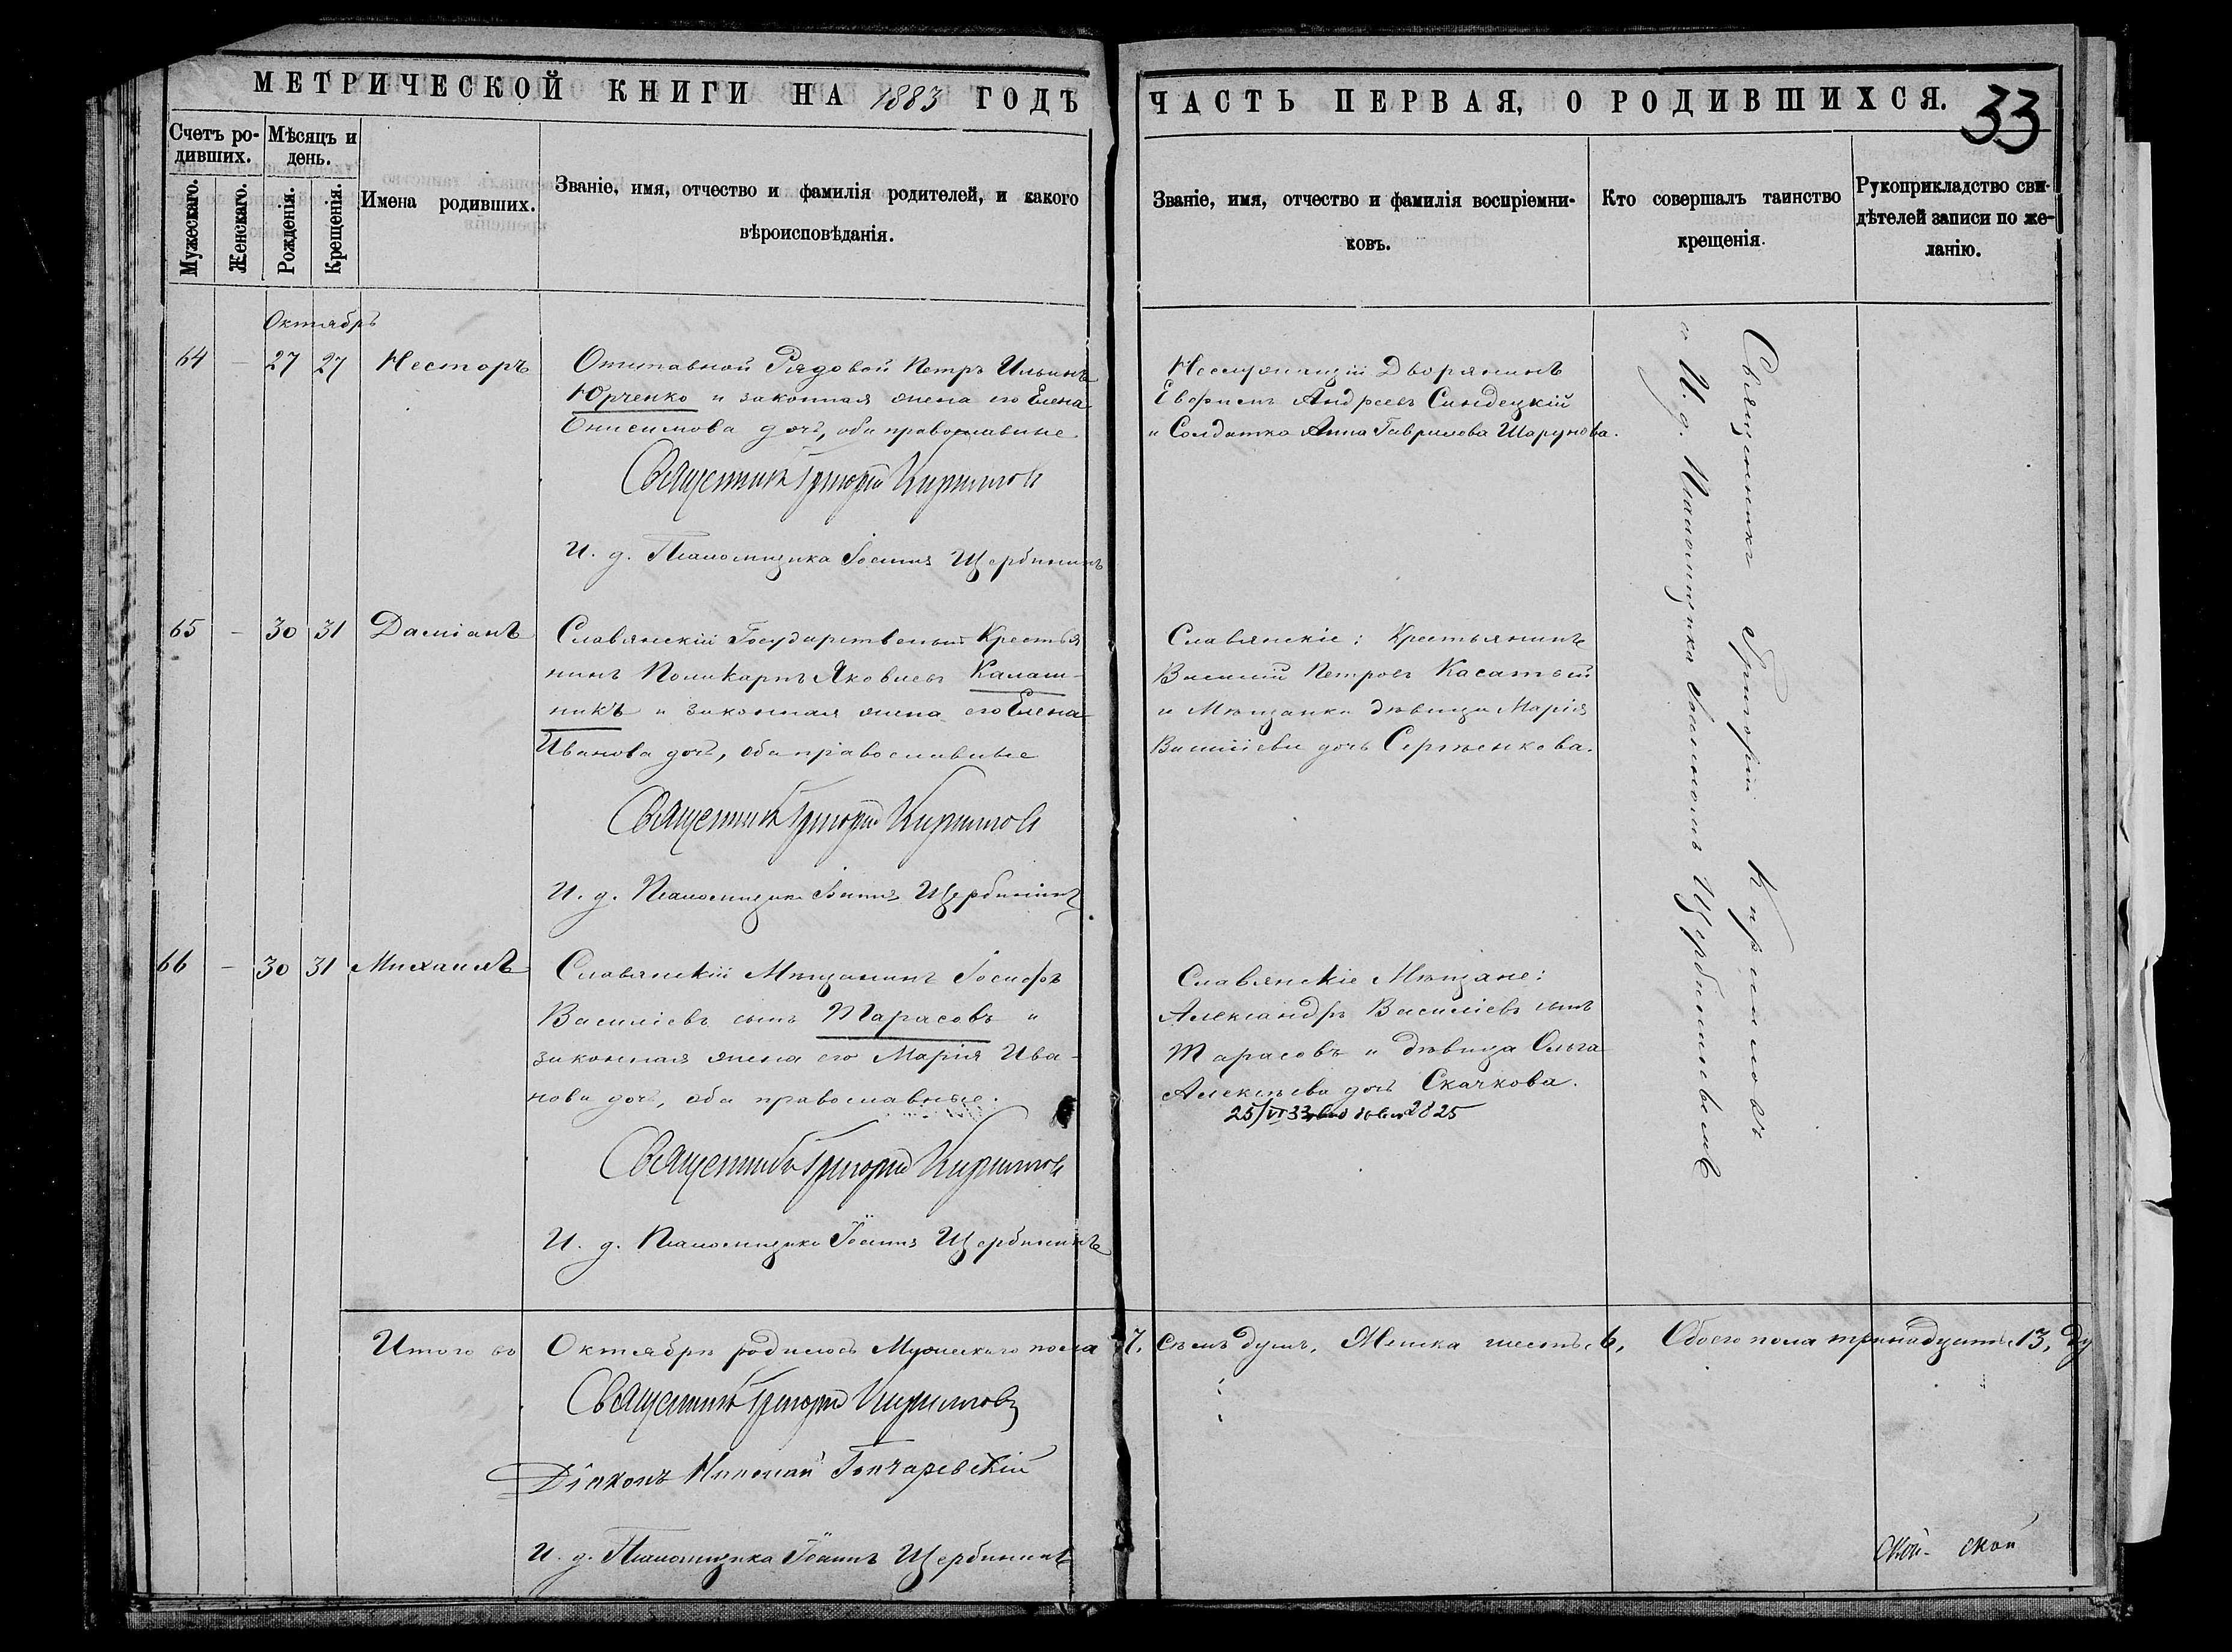 МЕТРИЧЕСКОЙ КНИГИ НА 1883 ГОДЪ
Счетъ ро-
дившихъ.
Мѣсяцъ и
день.
Мужескаго.
Женскаго.
Рожденія.
Крещенія.
Имена родившихъ.
Званіе, имя, отчество и фамилія родителей, и какого
вѣроисповѣданія.
Октябрь
64 — 27 27 Несторъ
Отставной Рядовой Петръ Ильинъ
Юрченко и законная жена его Елена
Онисимова дочь, оба православные.
Священникъ Григорій Кириловъ
И. д. Псаломщика Іоаннъ Щербининъ
65 — 30 31 Даміанъ
Славянскій Государственный Крестья
нинъ Поликарпъ Яковлевъ Калаш-
никъ и законная жена его Елена
Иванова дочь, оба православные
Священникъ Григорій Кириловъ
И. д. Псаломщика Іоаннъ Щербининъ
66 — 30 31 Михаилъ
Славянскій Мѣщанинъ Іосифъ
Василіевъ сынъ Тарасовъ и
законная жена его Марія Ива-
нова дочь, оба православные.
Священникъ Григорій Кириловъ
И. д. Псаломщика Іоаннъ Щербининъ
Итого въ Октябрѣ родилось Мужескаго пола
Священникъ Григорій Кириловъ
Діаконъ Николай Гончаревскій
И. д. Псаломщика Іоаннъ Щербининъ
ЧАСТЬ ПЕРВАЯ, О РОДИВШИХСЯ. 33
Званіе, имя, отчество и фамилія воспріемни-
ковъ.
Кто совершалъ таинство
крещенія.
Рукоприкладство сви-
дѣтелей записи по же-
ланію.
Неслужащій Дворянинъ
Андреевъ Синдецкій
и Солдатка Анна Гаврилова Шарунова.
Славянскіе: Крестьянинъ
Василій Петровъ Касатый
и Мѣщанка дѣвица Марія
Василіева дочь Сергѣенкова.
Славянскіе Мѣщане:
Александръ Василіевъ сынъ
Тарасовъ и дѣвица Ольга
Алексѣева дочь Скачкова.
25/VI 33 2825
Священникъ Григорій Кириловъ
съ И. д. Псаломщика Іоанномъ Щербининымъ
7. Семь душъ, Женска шесть, 6, Обоего пола тринадцать, 13, ду
ской